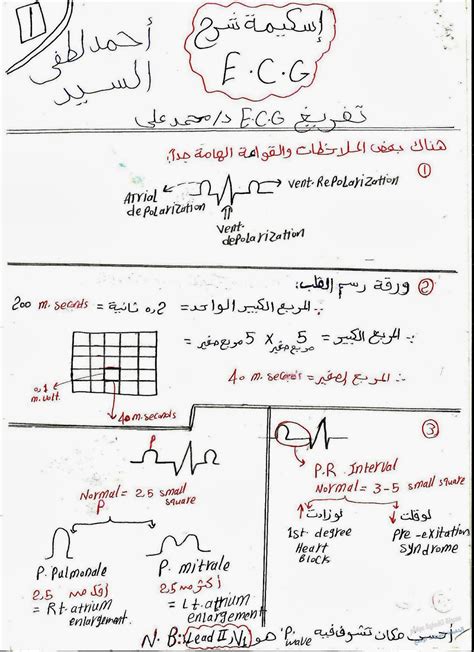 1
أحمد لطفى
السيد
إسكيمة شرح
E.C.G
تفريغ E.C.G د/محمد على
هناك بعض الملاحظات والقواعد الهامة جداً:
①
Atrial
depolarization
vent. Repolarization
vent.
depolarization
② ورقة رسم القلب:
∴ المربع الكبير الواحد = 0.2 ثانية = 200 m.seconds
∴ المربع الكبير = 5 مربع صغير × 5 مربع صغير =
∴ المربع الصغير = 40 m.seconds
0.1
m.volt.
40 m.seconds
③
P
Normal P = 2.5 small square
P. Pulmonale
أكثر من 2.5
= Rt. atrium
enlargement.
P. mitrale
أكثر من 2.5
= Lt. atrium
enlargement
P.R. Interval
Normal = 3-5 small square
لو زادت
1st degree
Heart
Block
لو قلت
Pre-exitation
syndrome
N.B: Lead II, V1 هو P wave أحسن مكان تشوف فيه